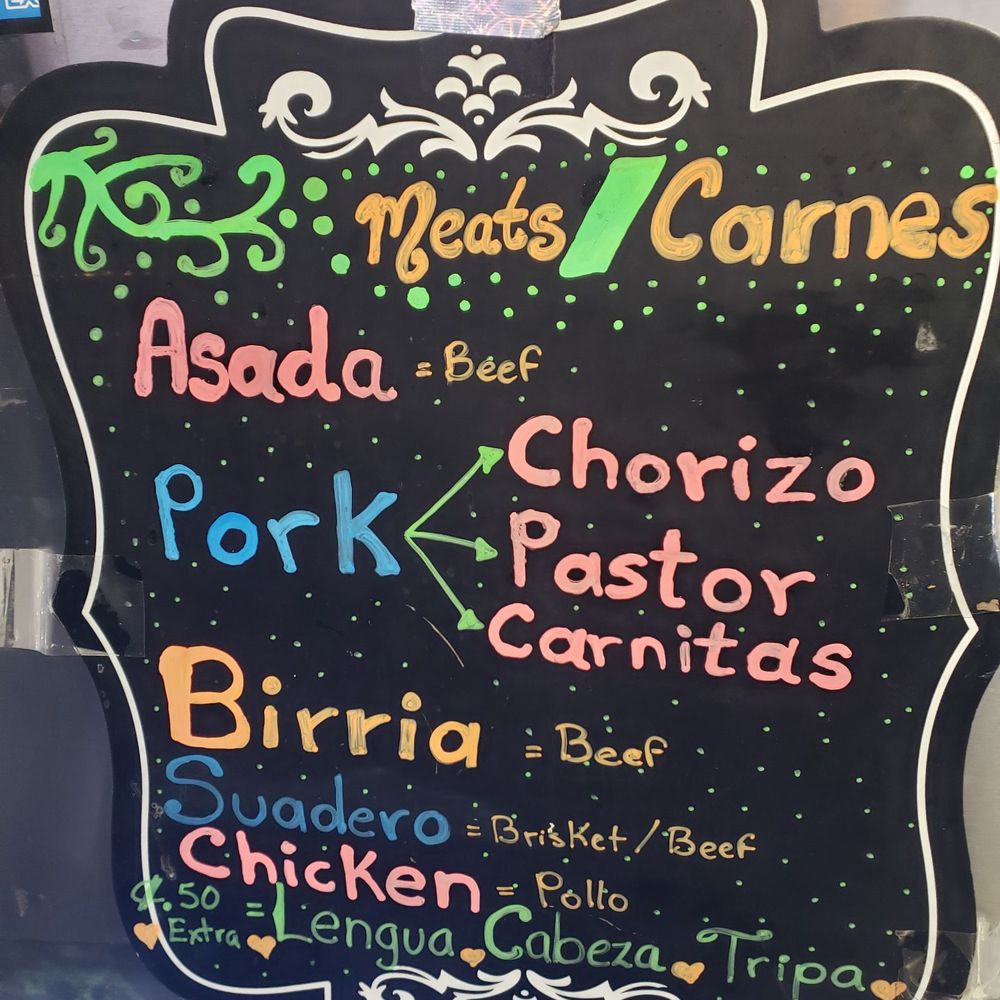 Meats / Carnes
Asada = Beef
Pork
Chorizo
Pastor
Carnitas
Birria = Beef
Suadero = Brisket / Beef
Chicken = Pollo
¢.50 Extra = Lengua Cabeza Tripa